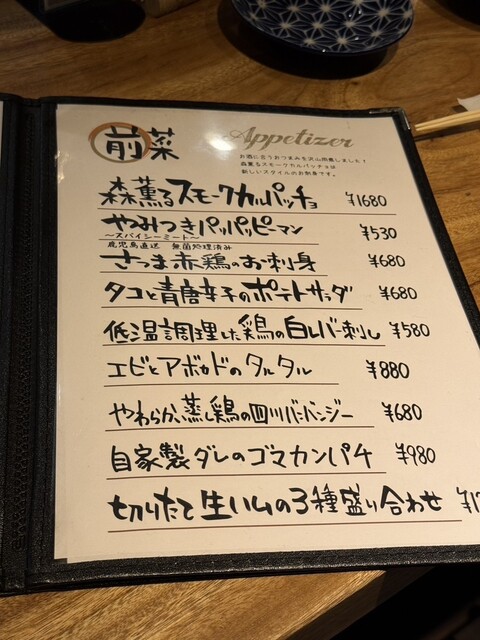 前菜 Appetizer
お酒に合うおつまみを沢山用意しました！
森薫るスモークカルパッチョは
新しいスタイルのお刺身です。
森薫るスモークカルパッチョ ¥1680
やみつきパッパッピーマン ¥530
～スパイシーミート～
鹿児島直送 無菌処理済み
さつま赤鶏のお刺身 ¥680
タコと青唐辛子のポテトサラダ ¥680
低温調理した鶏の白レバー刺し ¥580
エビとアボカドのタルタル ¥880
やわらか蒸し鶏の四川バンバンジー ¥680
自家製ダレのゴマカンパチ ¥980
切りたて生ハムの3種盛り合わせ